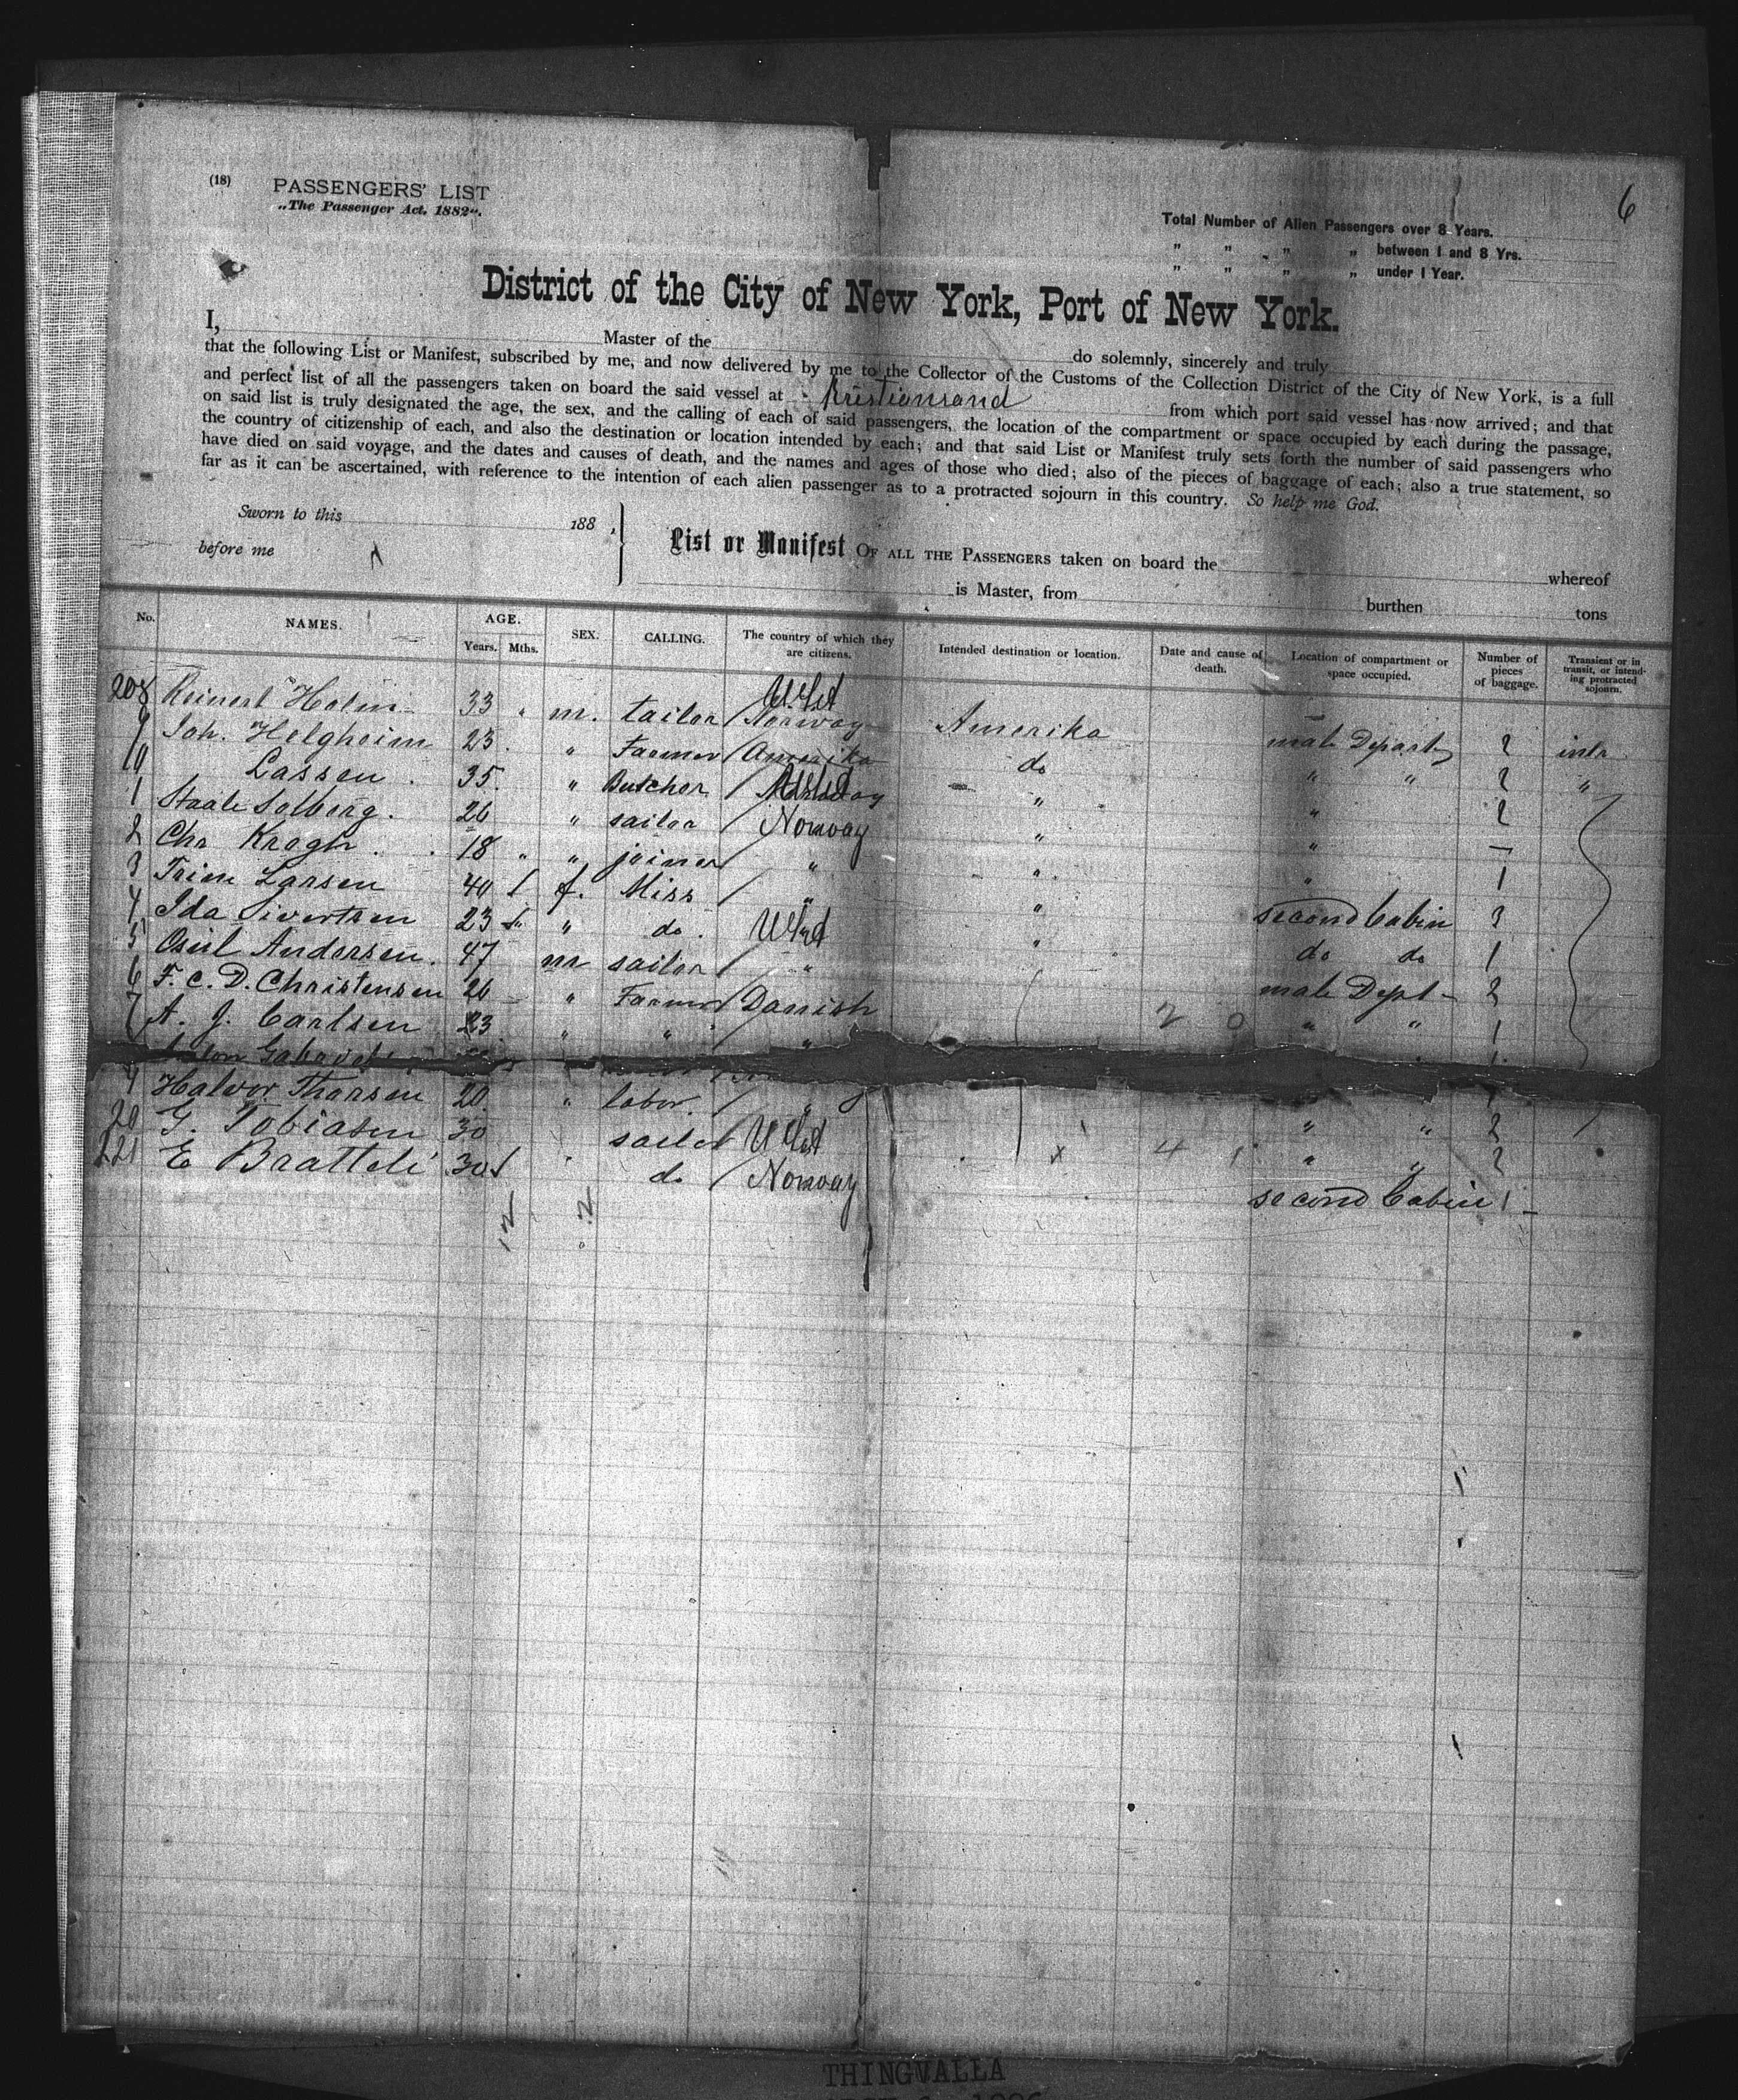 6
(18) PASSENGERS' LIST
„The Passenger Act, 1882“.
Total Number of Alien Passengers over 8 Years.
" " " „ between 1 and 8 Yrs.
" " " „ under 1 Year.
District of the City of New York, Port of New York.
I, Master of the do solemnly, sincerely and truly
that the following List or Manifest, subscribed by me, and now delivered by me to the Collector of the Customs of the Collection District of the City of New York, is a full
and perfect list of all the passengers taken on board the said vessel at Kristiansand from which port said vessel has now arrived; and that
on said list is truly designated the age, the sex, and the calling of each of said passengers, the location of the compartment or space occupied by each during the passage,
the country of citizenship of each, and also the destination or location intended by each; and that said List or Manifest truly sets forth the number of said passengers who
have died on said voyage, and the dates and causes of death, and the names and ages of those who died; also of the pieces of baggage of each; also a true statement, so
far as it can be ascertained, with reference to the intention of each alien passenger as to a protracted sojourn in this country. So help me God.
Sworn to this 188 ,
before me
List or Manifest OF ALL THE PASSENGERS taken on board the whereof
is Master, from burthen tons
No. NAMES. AGE. Years. Mths. SEX. CALLING. The country of which they are citizens. Intended destination or location. Date and cause of death. Location of compartment or space occupied. Number of pieces of baggage. Transient or in transit, or intending protracted sojourn.
208 Reinert Holm 33 " m. tailor Norway Amerika male Depart 2
9 Joh. Helgheim 23 " Farmer Amerika do " " 2 "
10 Lassen 35 " Butcher " " 2
1 Staale Solberg 26 " sailor Norway " "
2 Chr Kragh 18 " " joiner " " " 1
3 Trine Larsen 40 f. Miss " " second Cabin 3
4 Ida Sivertsen 23 " do " do do 1
5 Andersen 47 m sailor " male Dept 2
6 F. C. D. Christensen 26 " Farmer Danish 2 0 " " 1
7 A. J. Carlsen 23 " " "
9 Halvor Thorsen 20 " labor. " " " 2
20 G. Tobiasen 30 sailor x 4 1 " " 2
221 E Bratteli 30 do Norway second Cabin 1
12 2
THINGVALLA